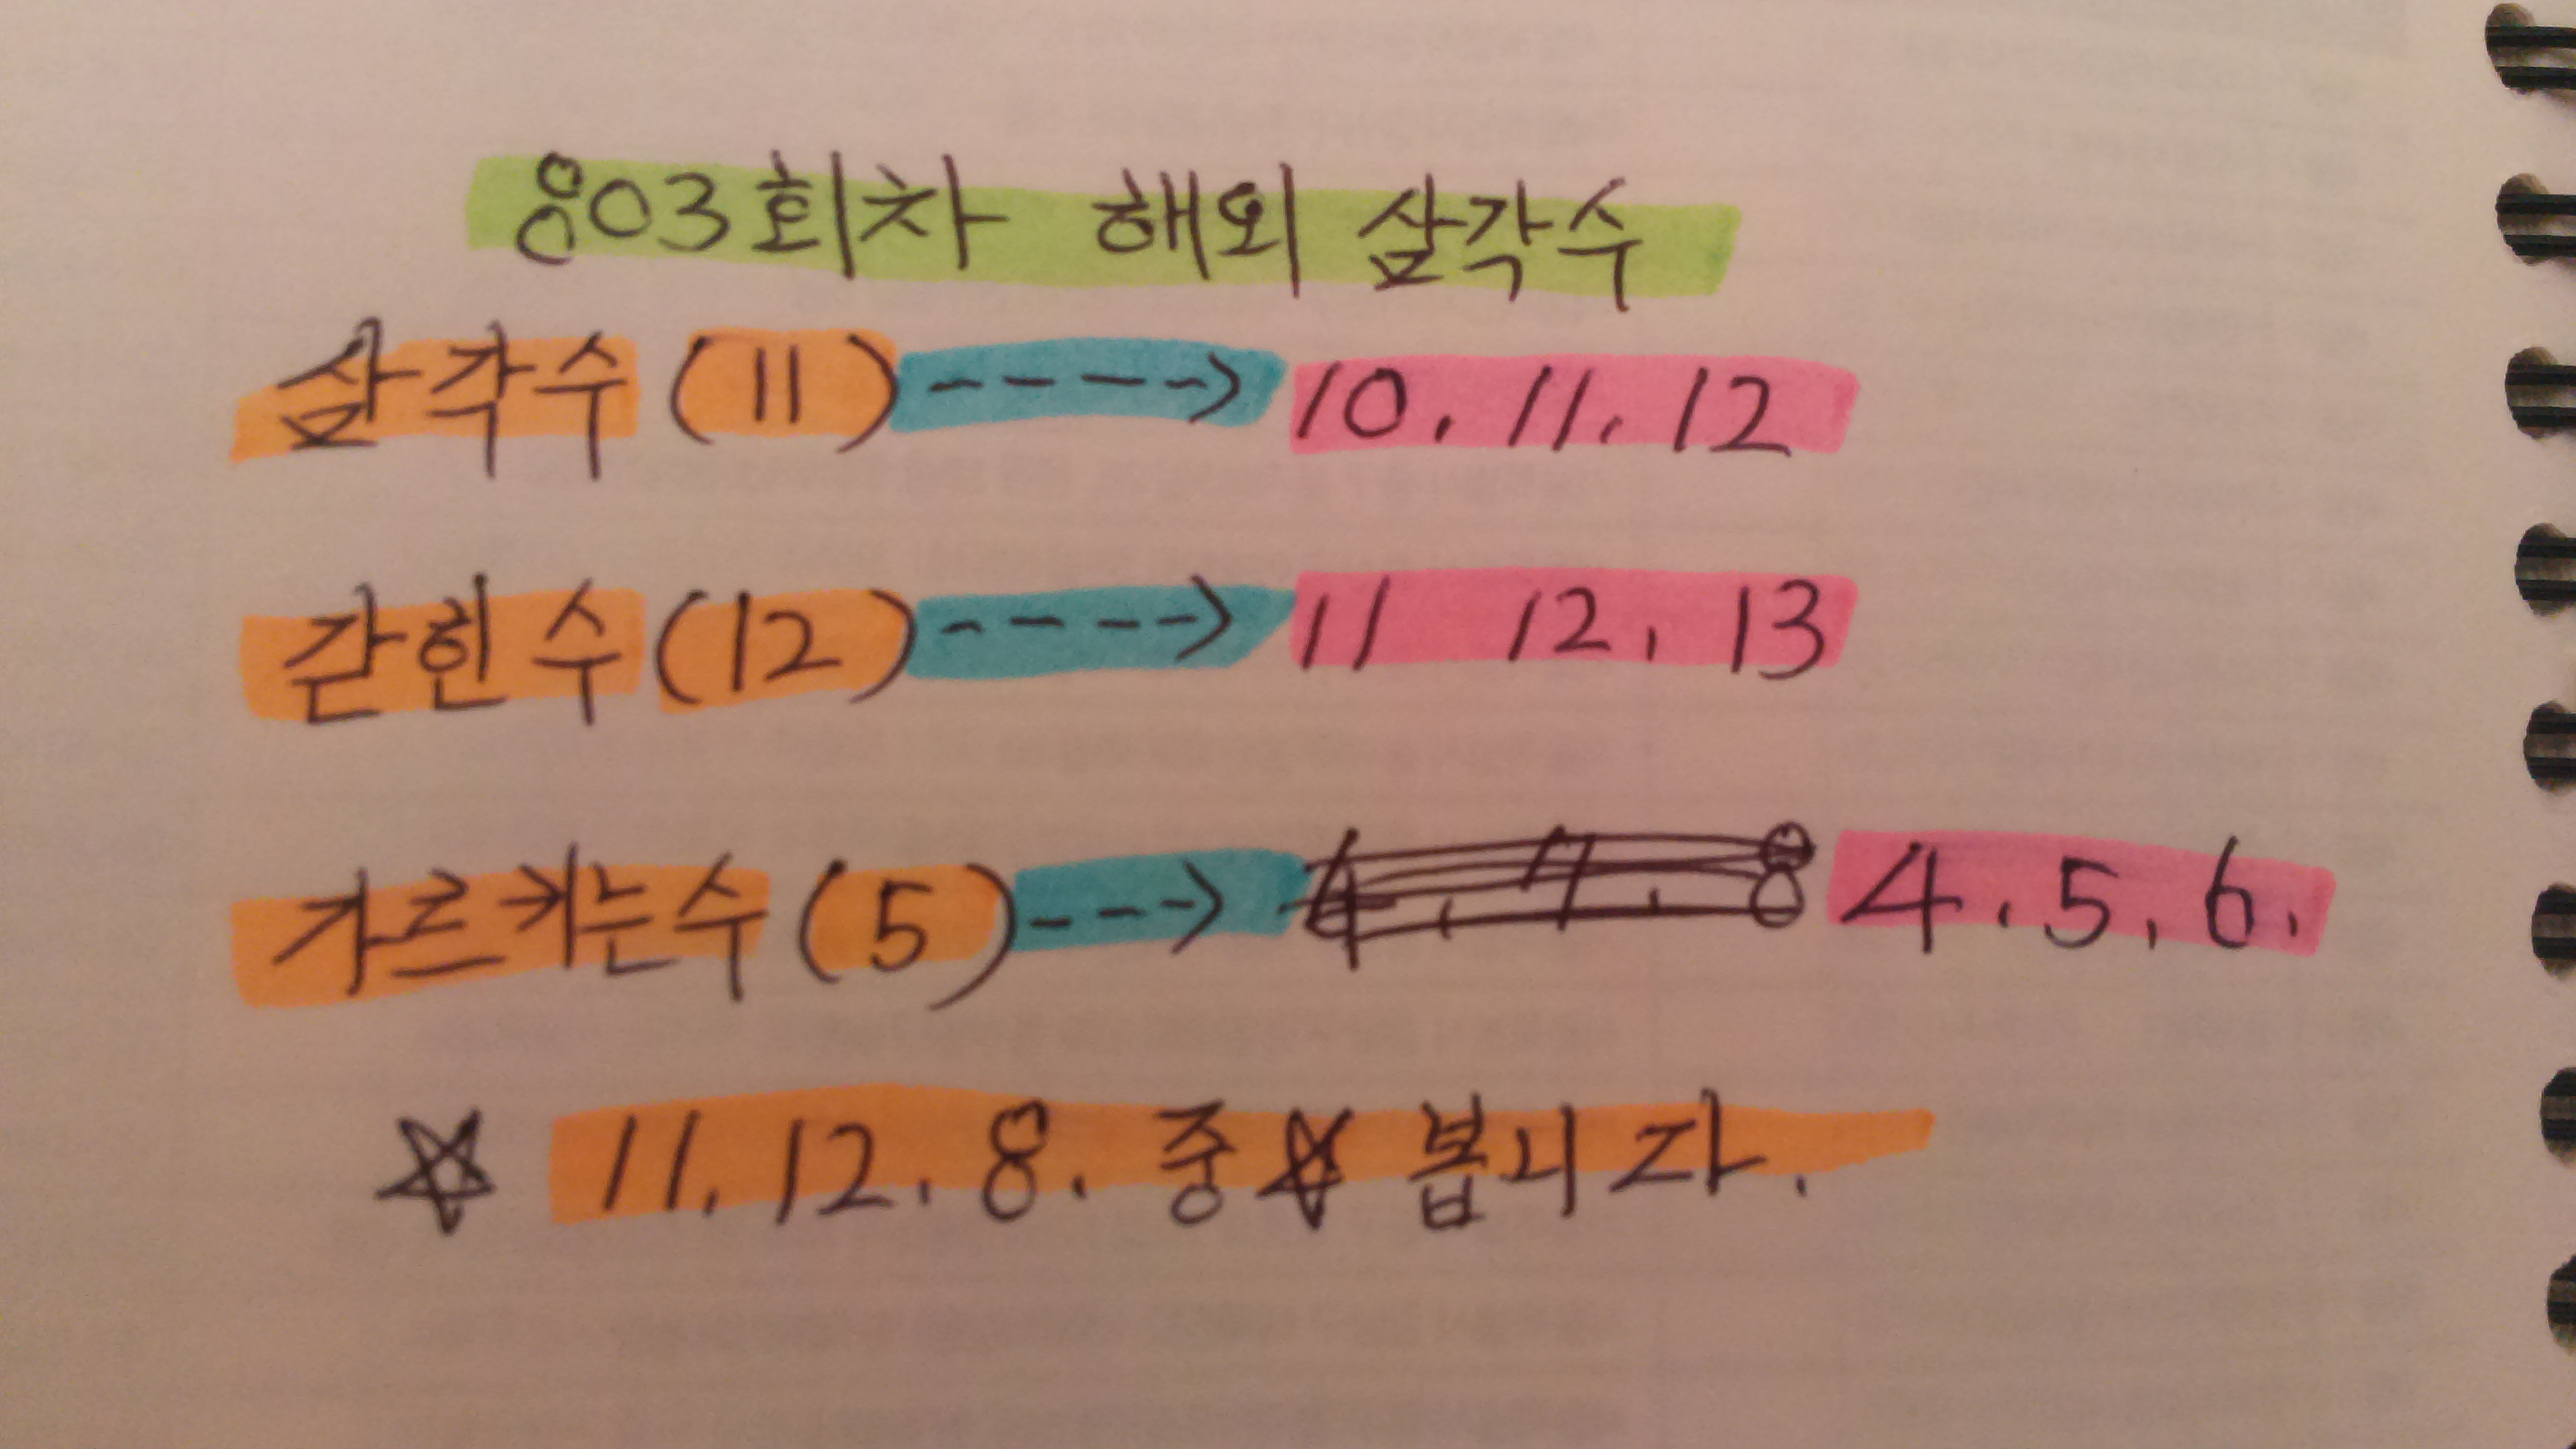 803회차 해외 삼각수
삼각수 (11) ----> 10. 11. 12
갇힌수 (12) ----> 11 12. 13
가르키는수 (5) ---> 4. 5. 6.
☆ 11. 12. 8. 중☆ 봅니다.